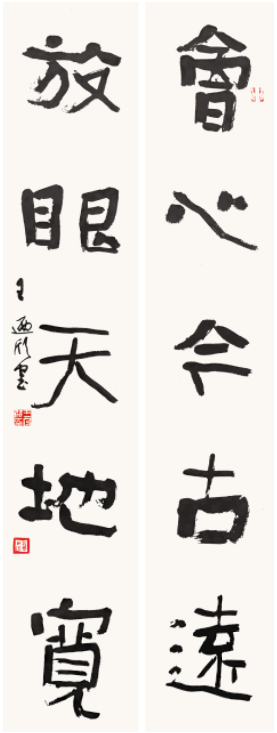 會心今古遠
放眼天地寬
王